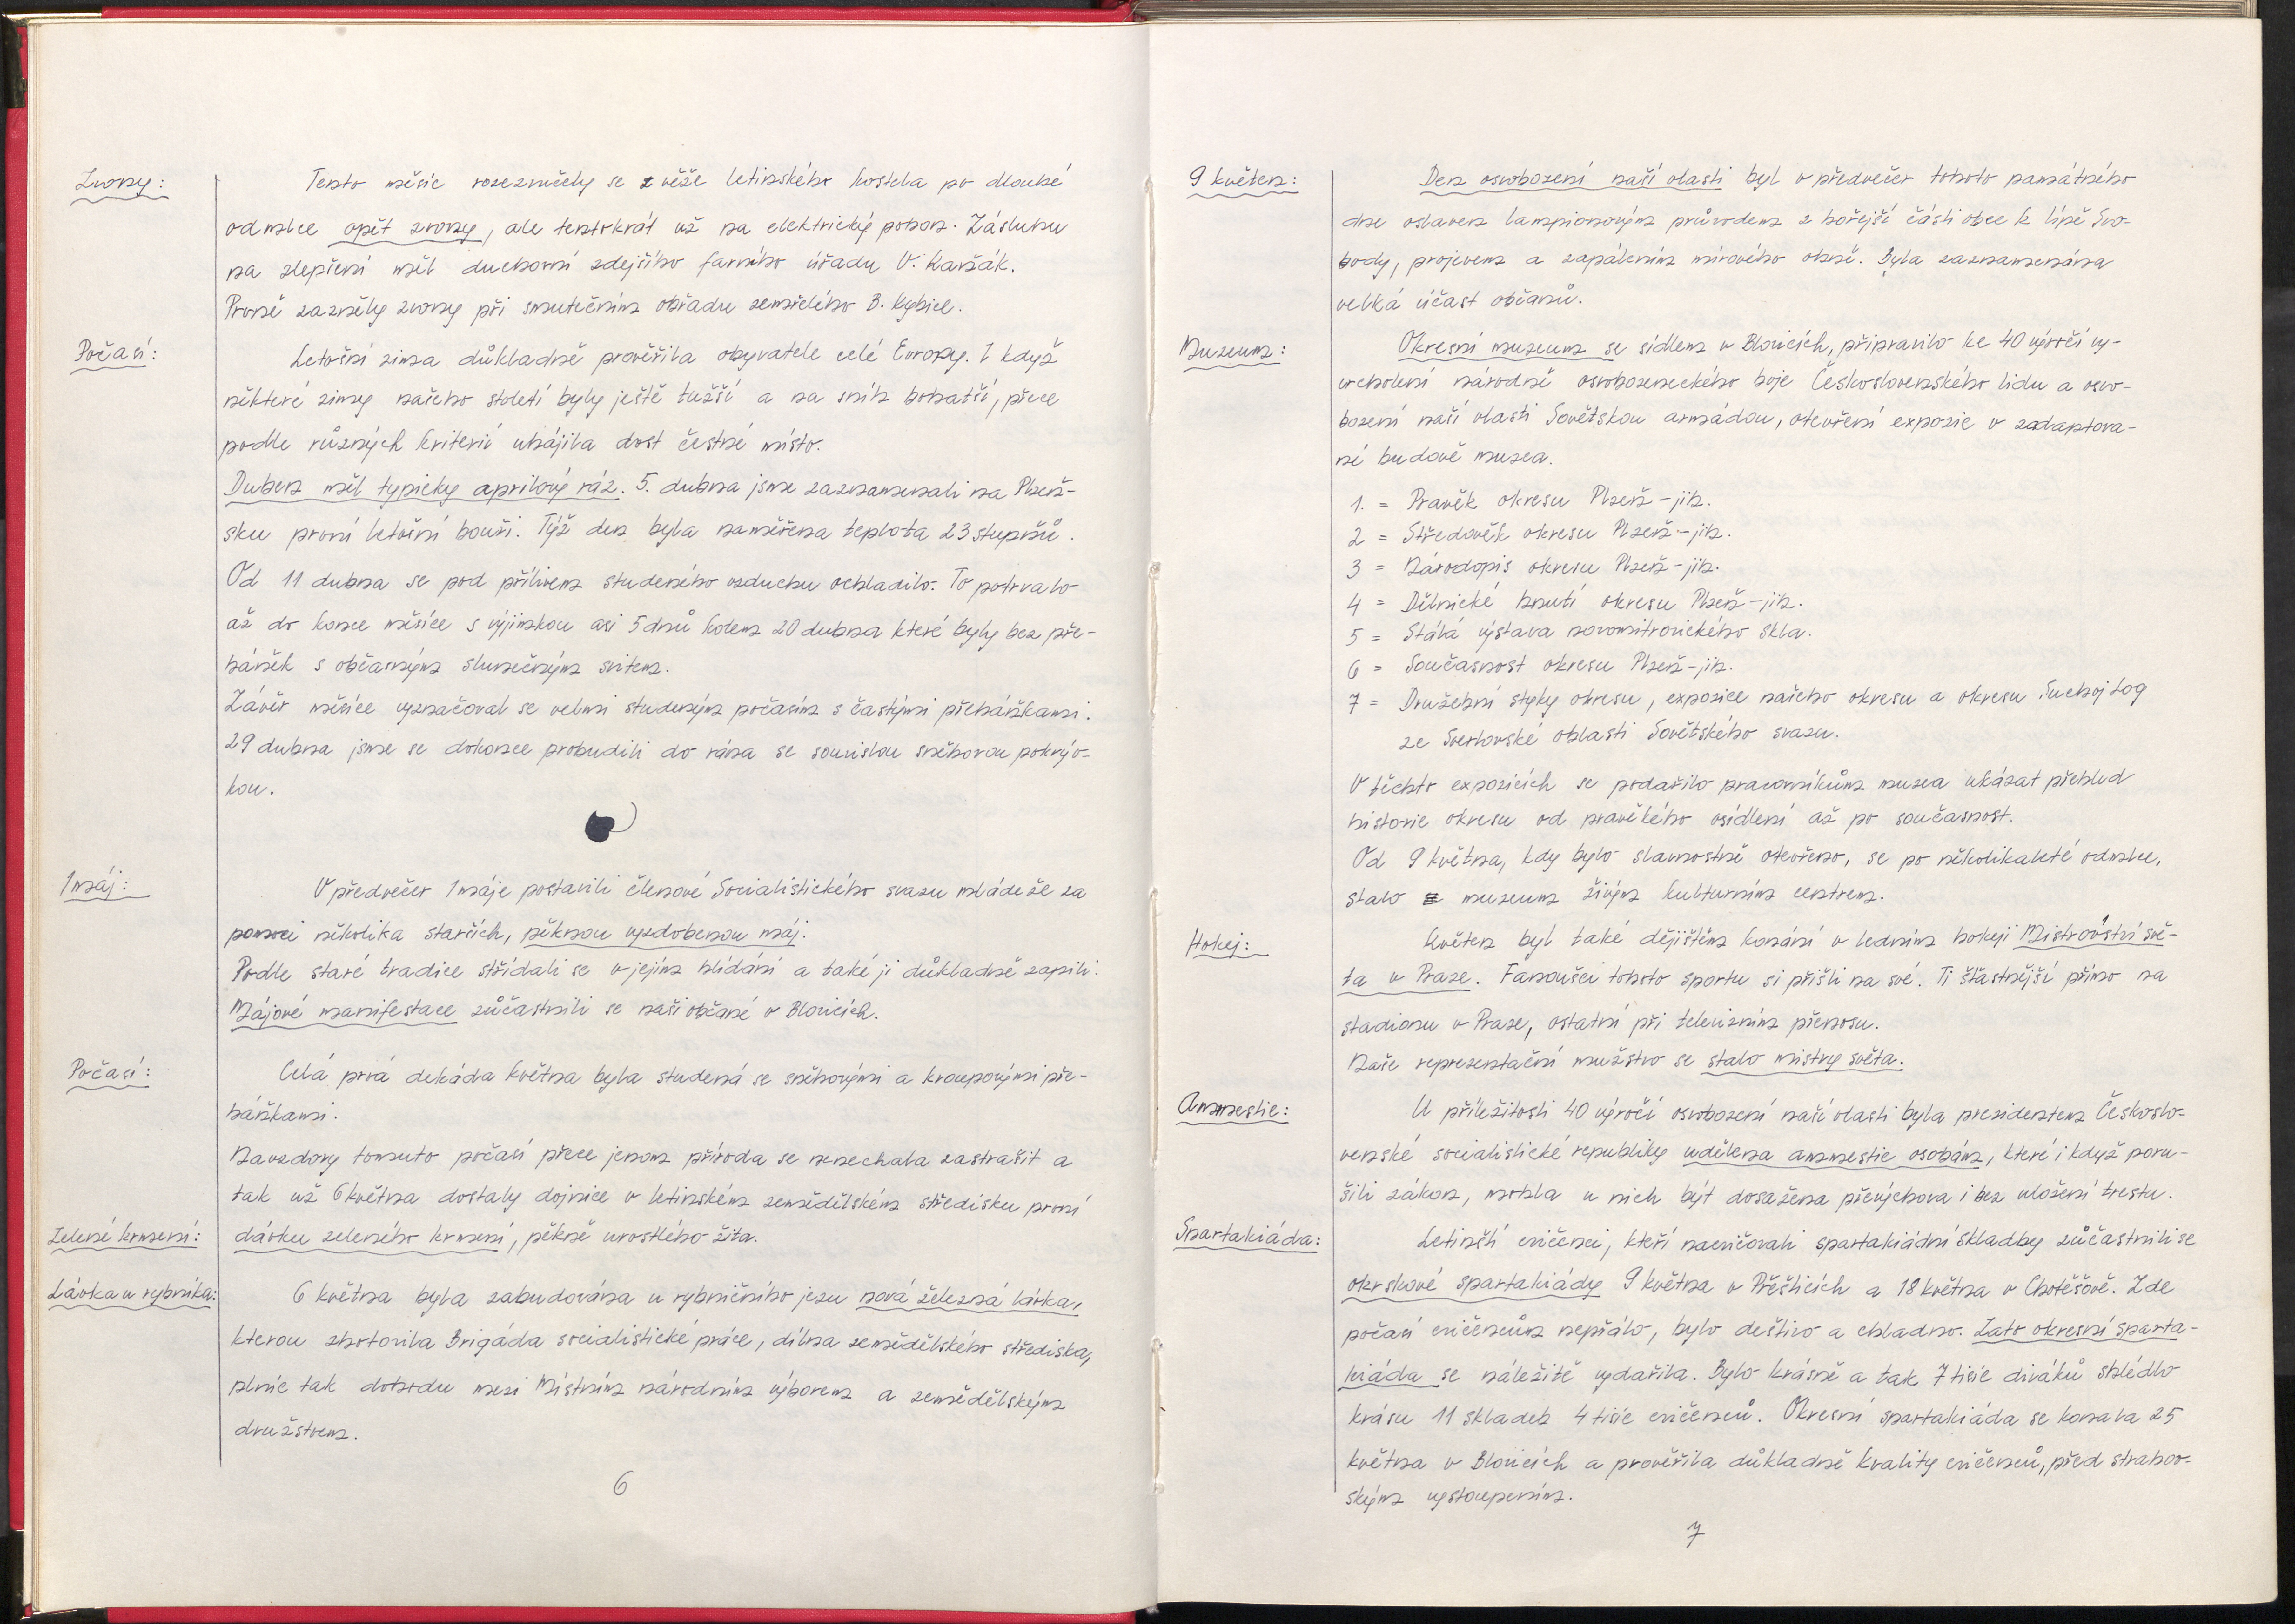 Zvony:
Tento měsíc rozezvučely se z věže letinského kostela po dlouhé
odmlce opět zvony, ale tentokrát už na elektrický pohon. Zásluhu
na zlepšení měl duchovní zdejšího farního úřadu V. Kaňák.
Prvně zazněly zvony při smutečním obřadu zemřelého B. Kybice.
Počasí:
Letošní zima důkladně prověřila obyvatele celé Evropy. I když
některé zimy našeho století byly ještě tužší a na sníh bohatší, přece
podle různých kriterií uhájila dost čestné místo.
Duben měl typicky aprilový ráz. 5. dubna jsme zaznamenali na Plzeň-
sku první letošní bouři. Týž den byla naměřena teplota 23 stupňů.
Od 11 dubna se pod přílivem studeného vzduchu ochladilo. To potrvalo
až do konce měsíce s výjimkou asi 5 dnů kolem 20 dubna které byly bez pře-
háněk s občasným slunečným svitem.
Závěr měsíce vyznačoval se velmi studeným počasím s častými přeháňkami.
29 dubna jsme se dokonce probudili do rána se souvislou sněhovou pokrýv-
kou.
1 máj:
V předvečer 1 máje postavili členové Socialistického svazu mládeže za
pomoci několika starších, pěknou vyzdobenou máj.
Podle staré tradice střídali se v jejím hlídání a také ji důkladně zapili.
Májové manifestace zůčastnili se naši občané v Blovicích.
Počasí:
Celá prvá dekáda května byla studená se sněhovými a kroupovými pře-
háňkami.
Navzdory tomuto počasí přece jenom příroda se nenechala zastrašit a
tak už 6 května dostaly dojnice v letinském zemědělském středisku první
Zelené krmení:
dávku zeleného krmení, pěkně urostlého žita.
Lávka u rybníka:
6 května byla zabudována u rybničního jezu nová železná lávka,
kterou zhotovila Brigáda socialistické práce, dílna zemědělského střediska,
plníc tak dohodu mezi Místním národním výborem a zemědělským
družstvem.
6
9 květen:
Den osvobození naší vlasti byl v předvečer tohoto památného
dne oslaven lampionovým průvodem z hořejší části obce k lípě Svo-
body, projevem a zapálením mírového ohně. Byla zaznamenána
velká účast občanů.
Muzeum:
Okresní muzeum se sídlem v Blovicích, připravilo ke 40 výročí vy-
vrcholení národně osvobozeneckého boje Československého lidu a osvo-
bození naší vlasti Sovětskou armádou, otevření expozic v zadaptova-
né budově muzea.
1. = Pravěk okresu Plzeň-jih.
2 = Středověk okresu Plzeň-jih.
3 = Národopis okresu Plzeň-jih.
4 = Dělnické hnutí okresu Plzeň-jih.
5 = Stálá výstava novomitrovického skla.
6 = Současnost okresu Plzeň-jih.
7 = Družební styky okresu, expozice našeho okresu a okresu Suchoj Log
ze Sverlovské oblasti Sovětského svazu.
V těchto expozicích se podařilo pracovníkům muzea ukázat přehled
historie okresu od pravěkého osídlení až po současnost.
Od 9 května, kdy bylo slavnostně otevřeno, se po několikaleté odmlce,
stalo muzeum živým kulturním centrem.
Hokej:
Květen byl také dějištěm konání v ledním hokeji Mistrovství svě-
ta v Praze. Fanoušci tohoto sportu si přišli na své. Ti šťastnější přímo na
stadionu v Praze, ostatní při televizním přenosu.
Naše reprezentační mužstvo se stalo mistry světa.
Ammestie:
U příležitosti 40 výročí osvobození naší vlasti byla prezidentem Českoslo-
venské socialistické republiky udělena ammestie osobám, které i když poru-
šili zákon, mohla u nich být dosažena převýchova i bez uložení trestu.
Spartakiáda:
Letinští cvičenci, kteří nacvičovali spartakiádní skladby zůčastnili se
okrskové spartakiády 9 května v Přešticích a 18 května v Chotěšově. Zde
počasí cvičencům nepřálo, bylo deštivo a chladno. Zato okresní sparta-
kiáda se náležitě vydařila. Bylo krásně a tak 7 tisíc diváků shlédlo
krásu 11 skladeb 4 tisíc cvičenců. Okresní spartakiáda se konala 25
května v Blovicích a prověřila důkladně kvality cvičenců, před strahov-
ským vystoupením.
7